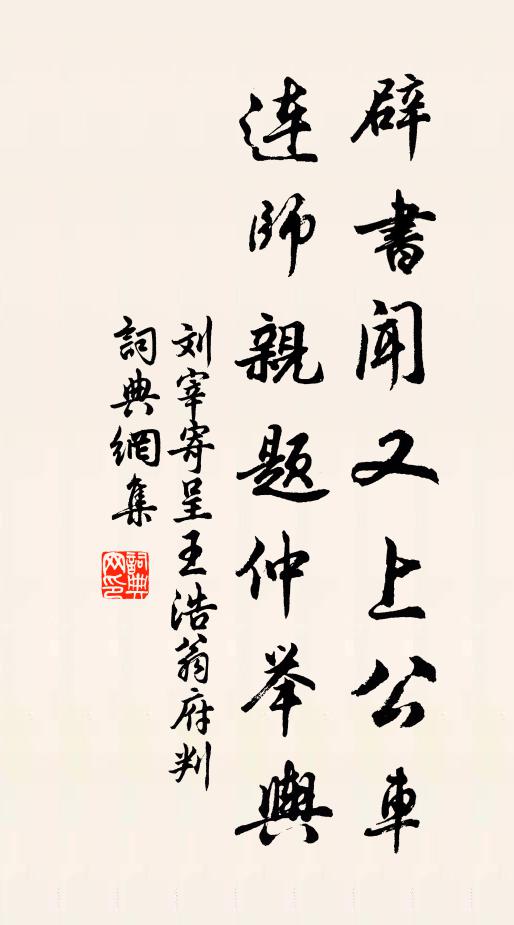 辟書聞又上公車
連師親題仲举輿
刘宰寄呈王浩翁府判
詞典網集
詞典网印